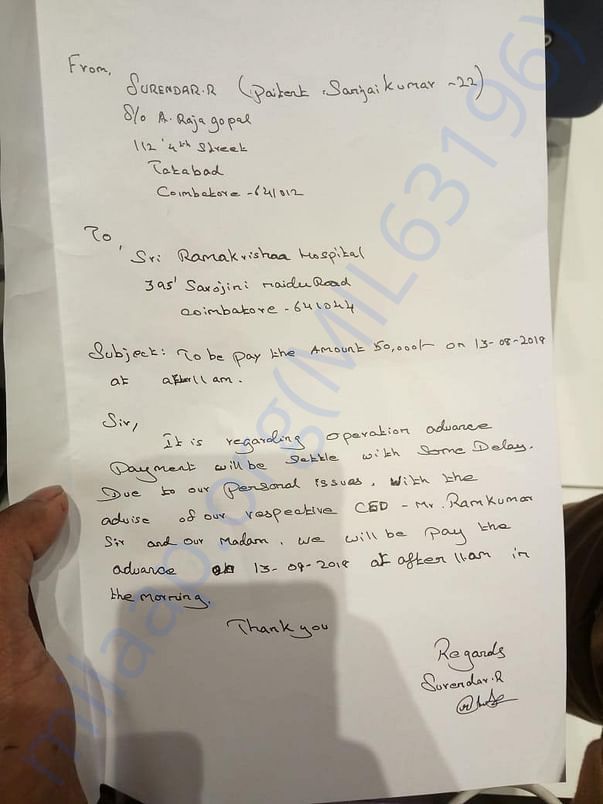 From,
SURENDAR.R (Paitent Sanjaikumar -22)
S/o A. Rajagopal
112 4th Street
Tatabad
Coimbatore - 641012
To,
Sri Ramakrishaa Hospital
395' Sarojini naidu Road
Coimbatore - 641044
Subject: To be pay the Amount 50,000/- on 13-08-2018
at after 11 am.
Sir,
It is regarding operation advance
Payment will be Settle with Some Delay.
Due to our Personal issues. With the
advise of our respective CEO - Mr. Ramkumar
Sir and our Madam. we will be pay the
advance on 13-08-2018 at after 11am in
the morning.
Thank you
Regards
Surendar.R
milaap.org(MIL63196)